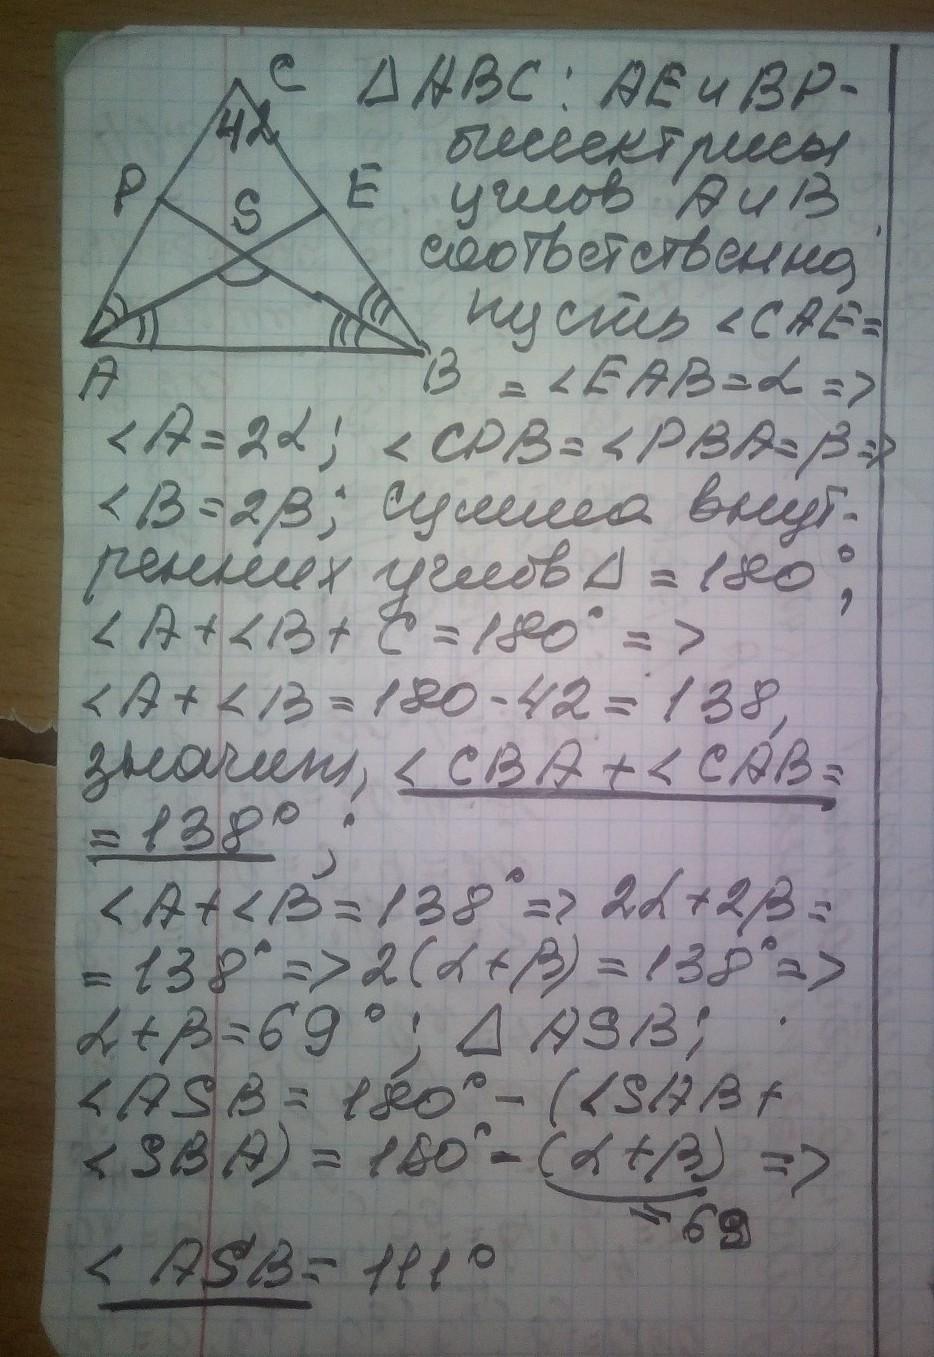 C
42
P
S
E
A
B
Δ ABC: AE и BP-
биссектрисы
углов A и B
соответственно,
пусть <CAE=
= <EAB=α =>
<A=2α; <CPB=<PBA=β=>
<B=2β; сумма внут-
ренних углов Δ = 180°;
<A+<B+ C =180° =>
<A+<B=180-42=138,
значит, <CBA+<CAB=
=138°;
<A+<B=138°=> 2α+2β=
=138°=>2(α+β)=138°=>
α+β=69°; Δ ASB;
<ASB= 180° - (<SAB+
<SBA) = 180°-(α+β) =>
= 69
< ASB= 111°